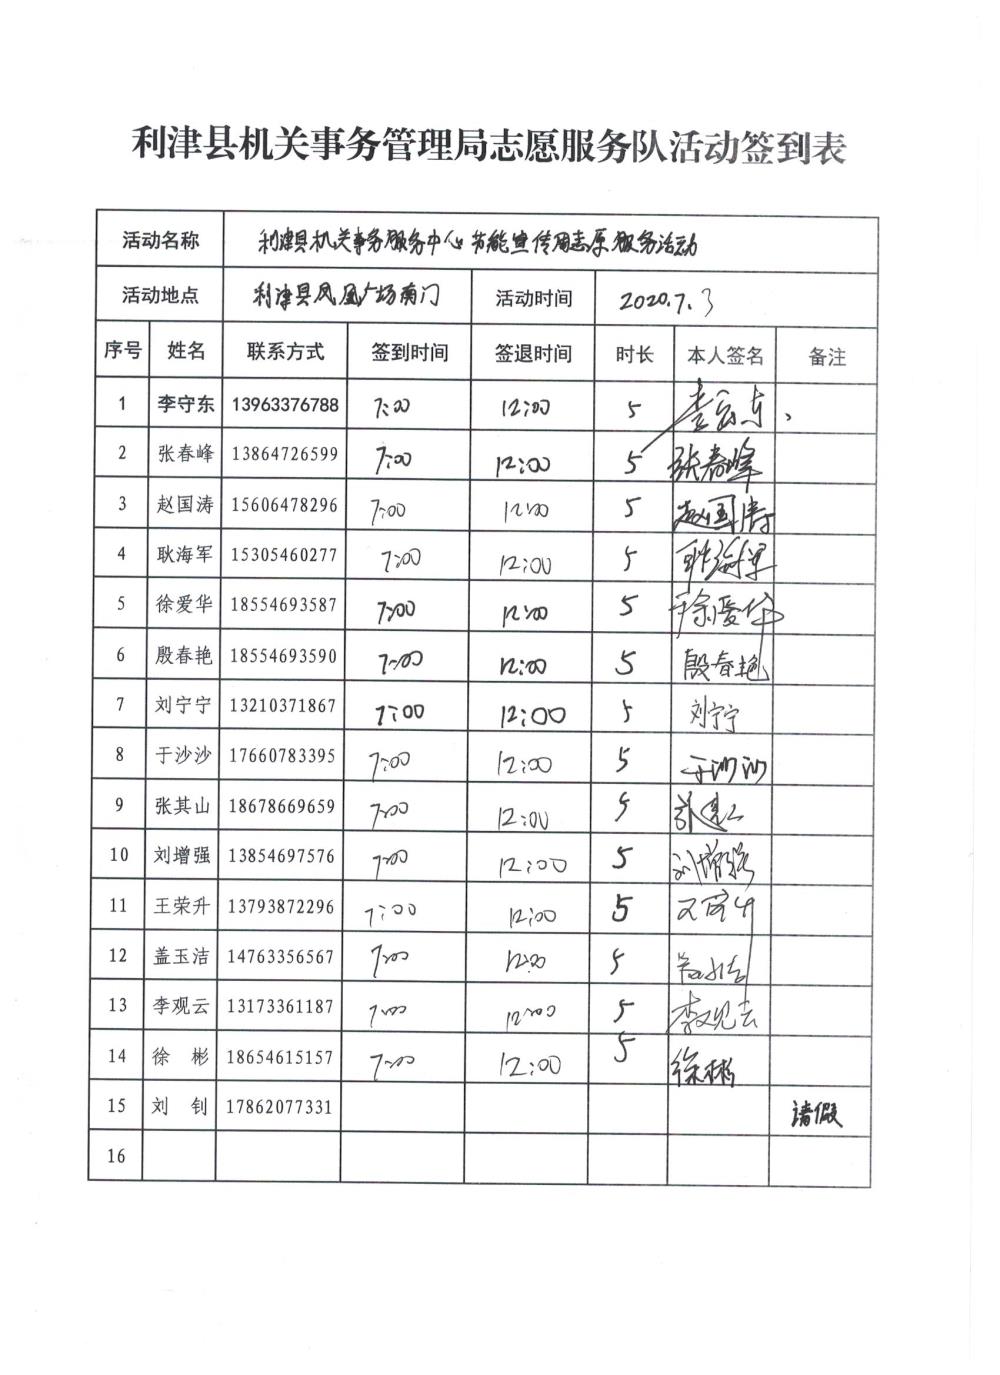 利津县机关事务管理局志愿服务队活动签到表
活动名称 利津县机关事务服务中心节能宣传周志愿服务活动
活动地点 利津县凤凰广场南门 活动时间 2020.7.3
序号 姓名 联系方式 签到时间 签退时间 时长 本人签名 备注
1 李守东 13963376788 7:00 12:00 5
2 张春峰 13864726599 7:00 12:00 5 张春峰
3 赵国涛 15606478296 7:00 12:00 5 赵国涛
4 耿海军 15305460277 7:00 12:00 5 耿海军
5 徐爱华 18554693587 7:00 12:00 5 徐爱华
6 殷春艳 18554693590 7:00 12:00 5 殷春艳
7 刘宁宁 13210371867 7:00 12:00 5 刘宁宁
8 于沙沙 17660783395 7:00 12:00 5 于沙沙
9 张其山 18678669659 7:00 12:00 5
10 刘增强 13854697576 7:00 12:00 5 刘增强
11 王荣升 13793872296 7:00 12:00 5
12 盖玉洁 14763356567 7:00 12:00 5
13 李观云 13173361187 7:00 12:00 5 李观云
14 徐 彬 18654615157 7:00 12:00 5 徐彬
15 刘 钊 17862077331 请假
16